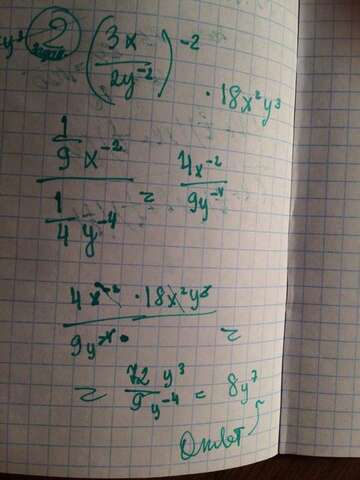 y³ 2 (3x / 2y⁻²)⁻² · 18x²y³
задан
1/9 x⁻² / 1/4 y⁻⁴ = 4x⁻² / 9y⁻⁴
4x⁻² · 18x²y³ / 9y⁻⁴ =
= 72 y³ / 9 y⁻⁴ = 8y⁷
Ответ